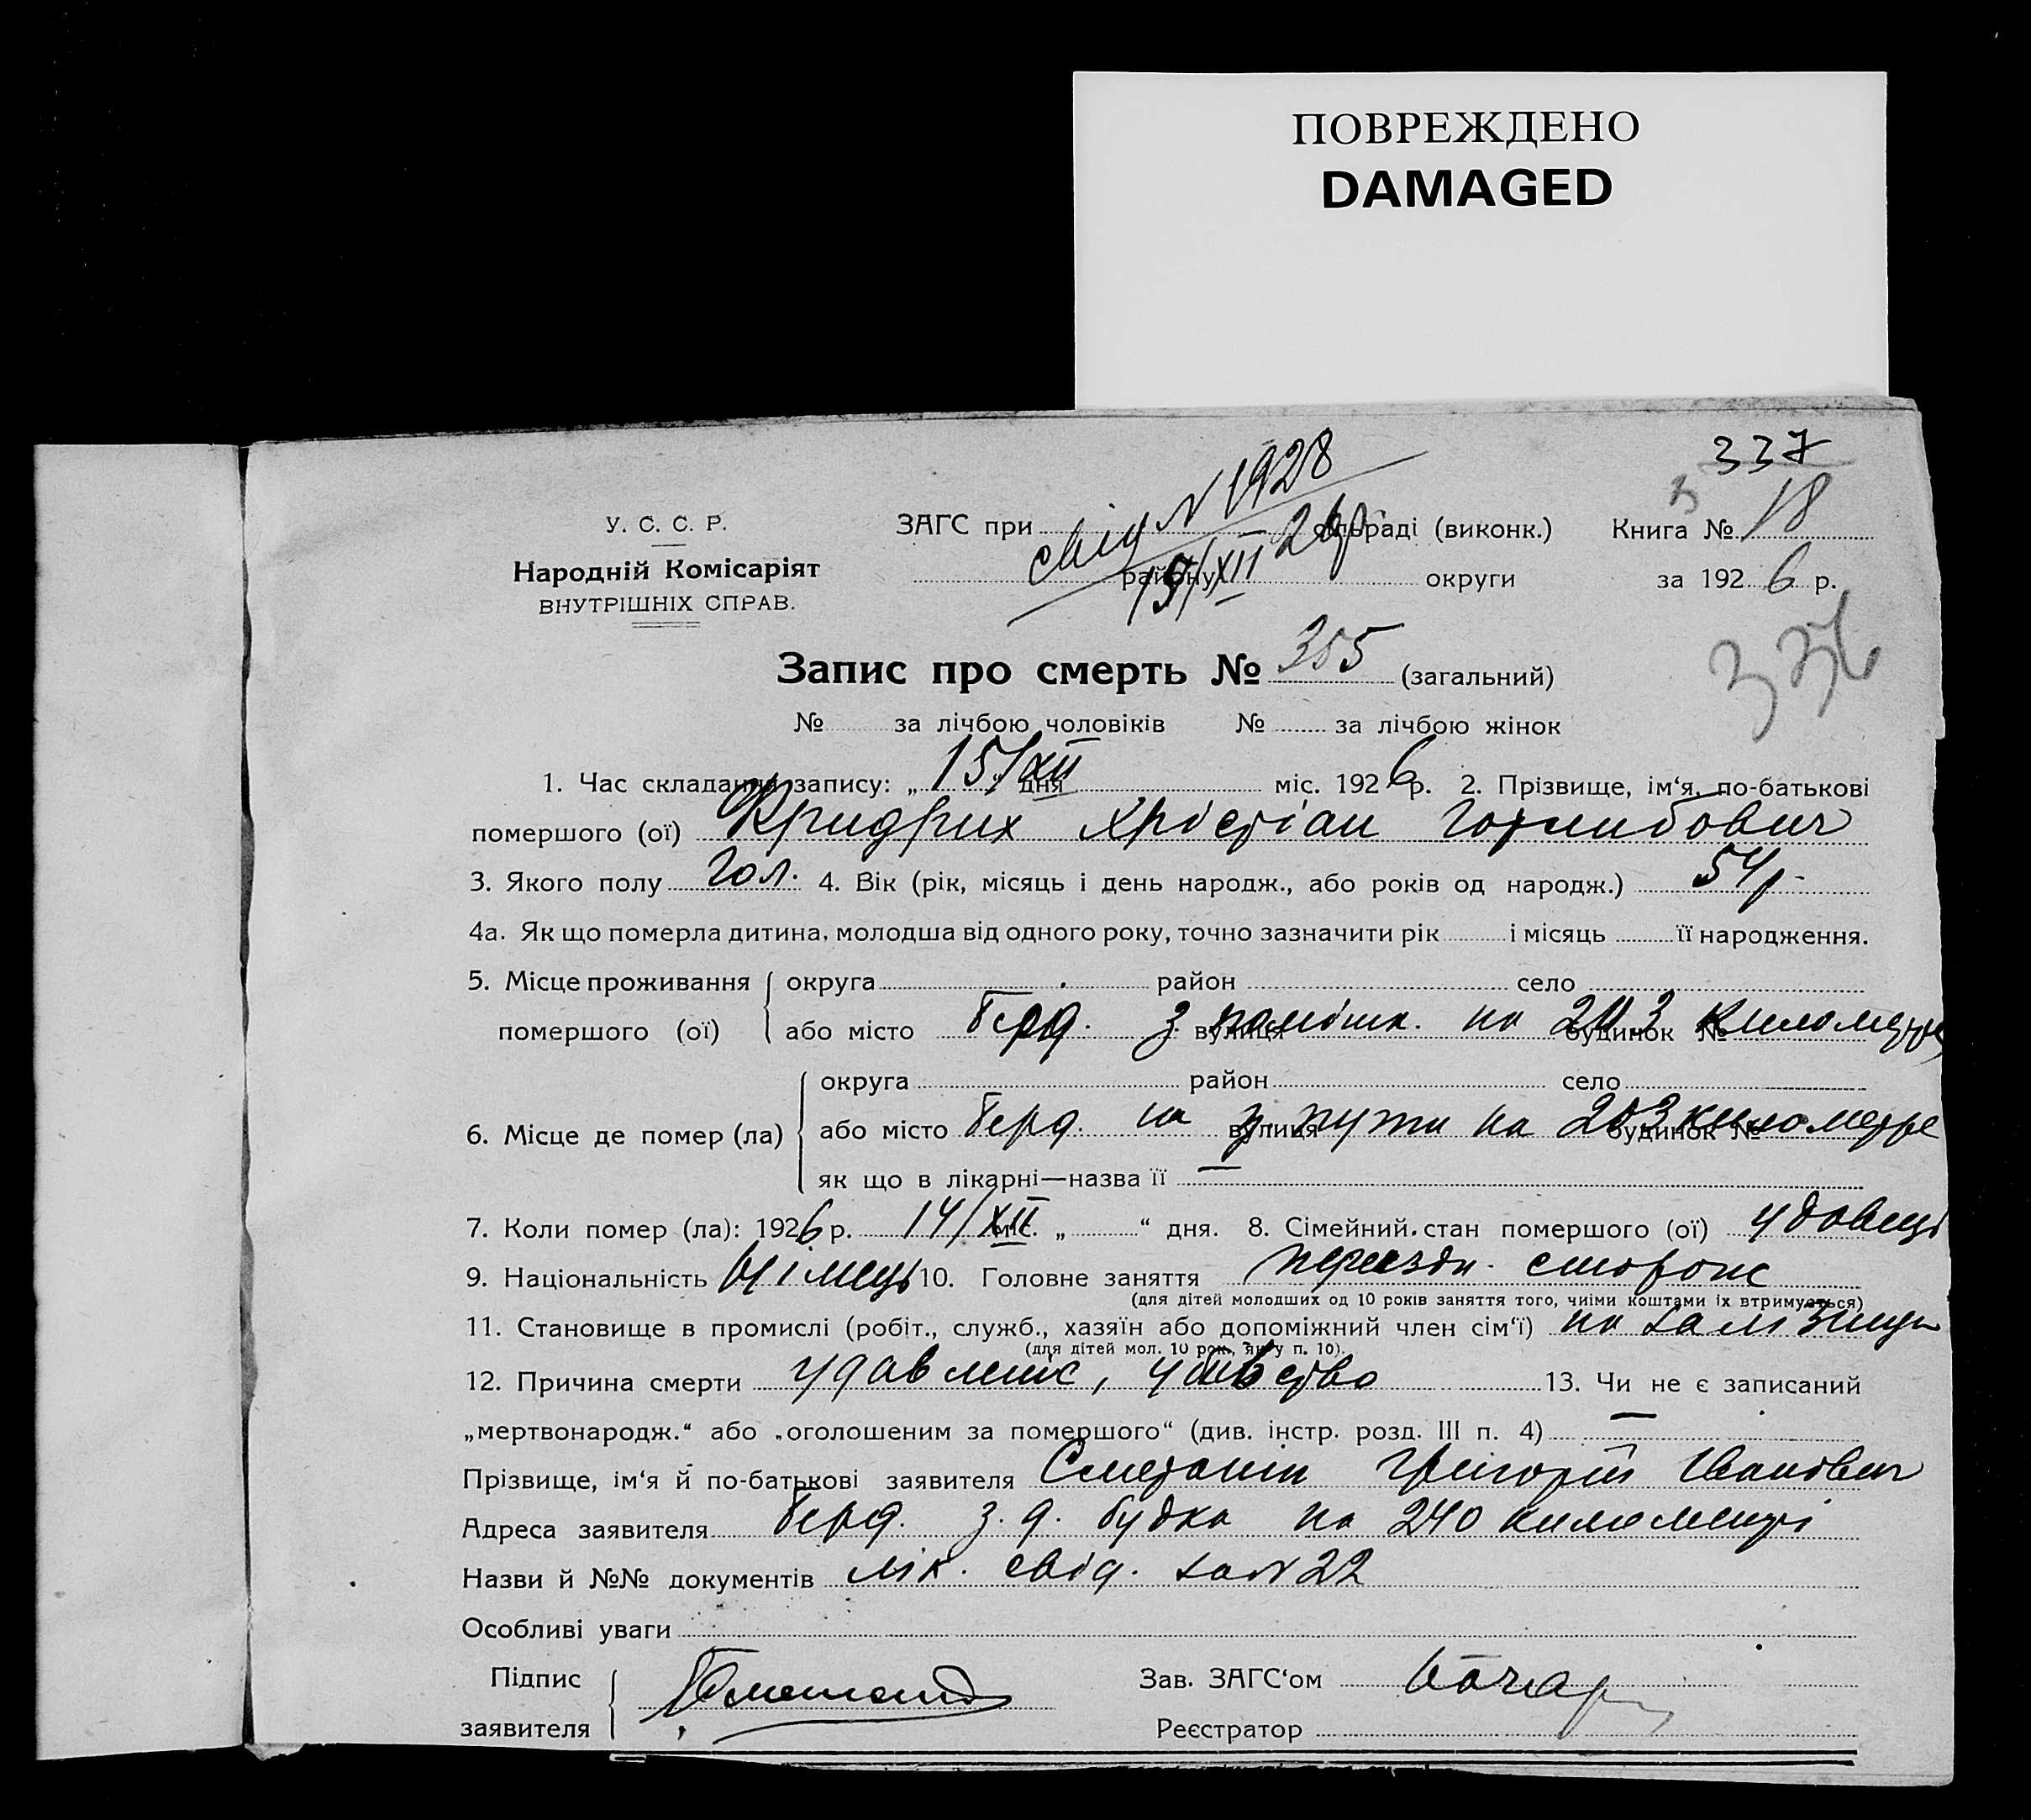 ПОВРЕЖДЕНО
DAMAGED
337
18
свід N 1928
15/XII 26р
У. С. С. Р.
Народній Комісаріят
ВНУТРІШНІХ СПРАВ.
ЗАГС при сільраді (виконк.) Книга №
району округи за 192 6 р.
336
Запис про смерть № 355 (загальний)
№ за лічбою чоловіків № за лічбою жінок
1. Час складання запису: „ 15/XII “ дня міс. 192 6 р. 2. Прізвище, ім‘я, по-батькові
помершого (ої) Хрістіан Готлибович
3. Якого полу чол. 4. Вік (рік, місяць і день народж., або років од народж.) 54 р.
4а. Як що померла дитина, молодша від одного року, точно зазначити рік і місяць її народження.
5. Місце проживання округа район село
помершого (ої) або місто Берд. вулиця на 203 будинок № километрі
округа район село
6. Місце де помер (ла) або місто Берд. на вулиця пути на 203 будинок № километре
як що в лікарні—назва її —
7. Коли помер (ла): 192 6 р. 14/XII міс. „ “ дня. 8. Сімейний стан помершого (ої) удовець
9. Національність німець 10. Головне заняття переездн. сторож
(для дітей молодших од 10 років заняття того, чиїми коштами їх втримується)
11. Становище в промислі (робіт., служб., хазяїн або допоміжний член сім‘ї) на залізниці
(для дітей мол. 10 рок., як у п. 10).
12. Причина смерти удавление, убивство 13. Чи не є записаний
„мертвонародж.“ або „оголошеним за помершого“ (див. інстр. розд. III п. 4) —
Прізвище, ім‘я й по-батькові заявителя Сметанін Григорій Іванович
Адреса заявителя Берд. з. д. будка на 240 километрі
Назви й №№ документів лік. свід. за N 22
Особливі уваги
Підпис Зав. ЗАГС‘ом
заявителя Реєстратор